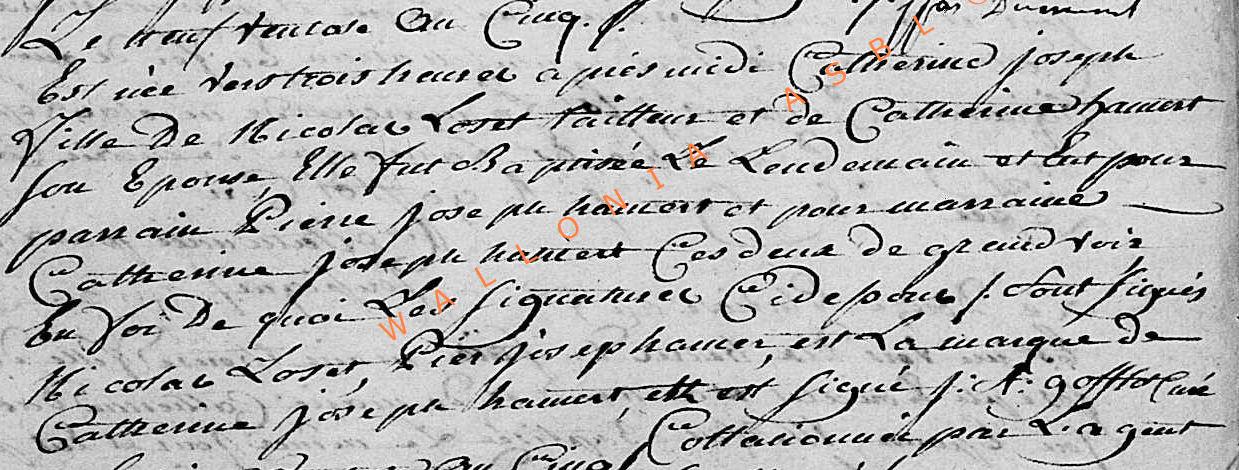 Dumont
Le neuf ventose an Cinq. /.
Est née vers trois heures après midi Catherine joseph
fille De Nicolas Loset tailleur et de Catherine hamert
son Epouse, Elle fut Baptisée Le Lendemain et Eut pour
parrain Pierre joseph hamert et pour marraine
Catherine joseph hamert Ces deux de grandvoir
En foi De quoi Les signatures Ci
Sont signés
Nicolas Loset, Pier josep hamer, est La marque de
Catherine joseph hamert, est signé j: A: gofflot Curé
Collationnée par L'agent
an Cinq
WALLONIA ASBL